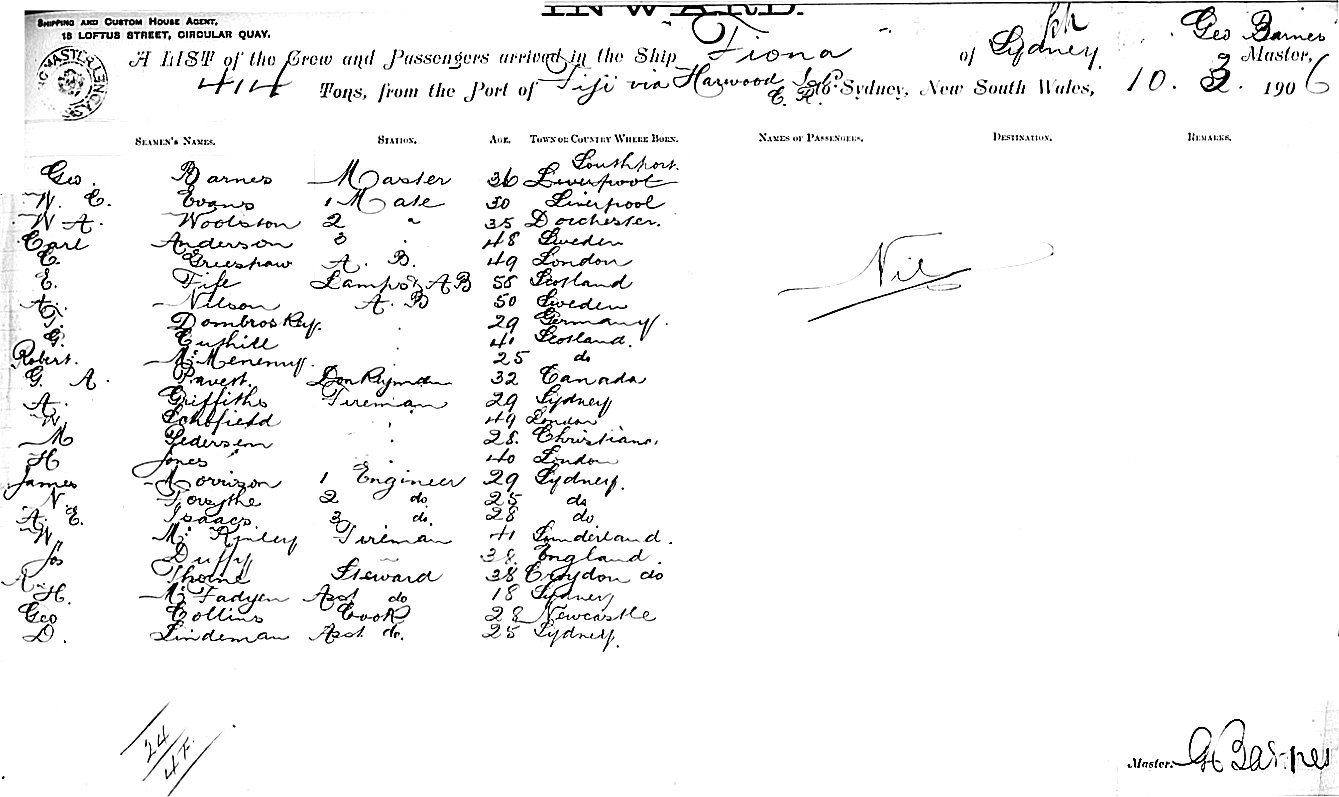 INWARD.
SHIPPING AND CUSTOM HOUSE AGENT,
18 LOFTUS STREET, CIRCULAR QUAY.
A LIST of the Crew and Passengers arrived in the Ship Fiona of Sydney Geo Barnes Master,
414 Tons, from the Port of Fiji via Harwood Is C. R. to Sydney, New South Wales, 10. 3. 1906
SEAMEN'S NAMES. STATION. AGE. TOWN OR COUNTRY WHERE BORN. NAMES OF PASSENGERS. DESTINATION. REMARKS.
Geo. Barnes Master 36 Southport. Liverpool
W. E. Evans 1 Mate 30 Liverpool
W A. Woolston 2 " 35 Dorchester.
Carl Anderson 3 . 48 Sweden
Greeshaw A. B. 49 London
E. Fife Lamps & AB 55 Scotland
A. Nilson A. B 50 Sweden
Dombrosky. 29 Germany.
G. Cuthill 41 Scotland.
Robert. McMenemy. 25 do
G. A. Pavert. Donkeyman 32 Canada
A. Griffiths Fireman 29 Sydney
W Schofield 49 London
M Pedersen 28. Christiana.
H Jones 40 London
James Morrison 1 Engineer 29 Sydney.
N. Forsythe 2 do. 25 do
A. E. Isaacs. 3 do. 28 do.
W. McKinley Fireman 41 Sunderland.
Jos Duffy 38. England.
A. Thorne Steward 38 Croydon do
H. McFadyen Asst do 18 Sydney
Geo Collins Cook 28 Newcastle
D. Lindeman Asst do. 25 Sydney.
Nil
24
Master. G Barnes